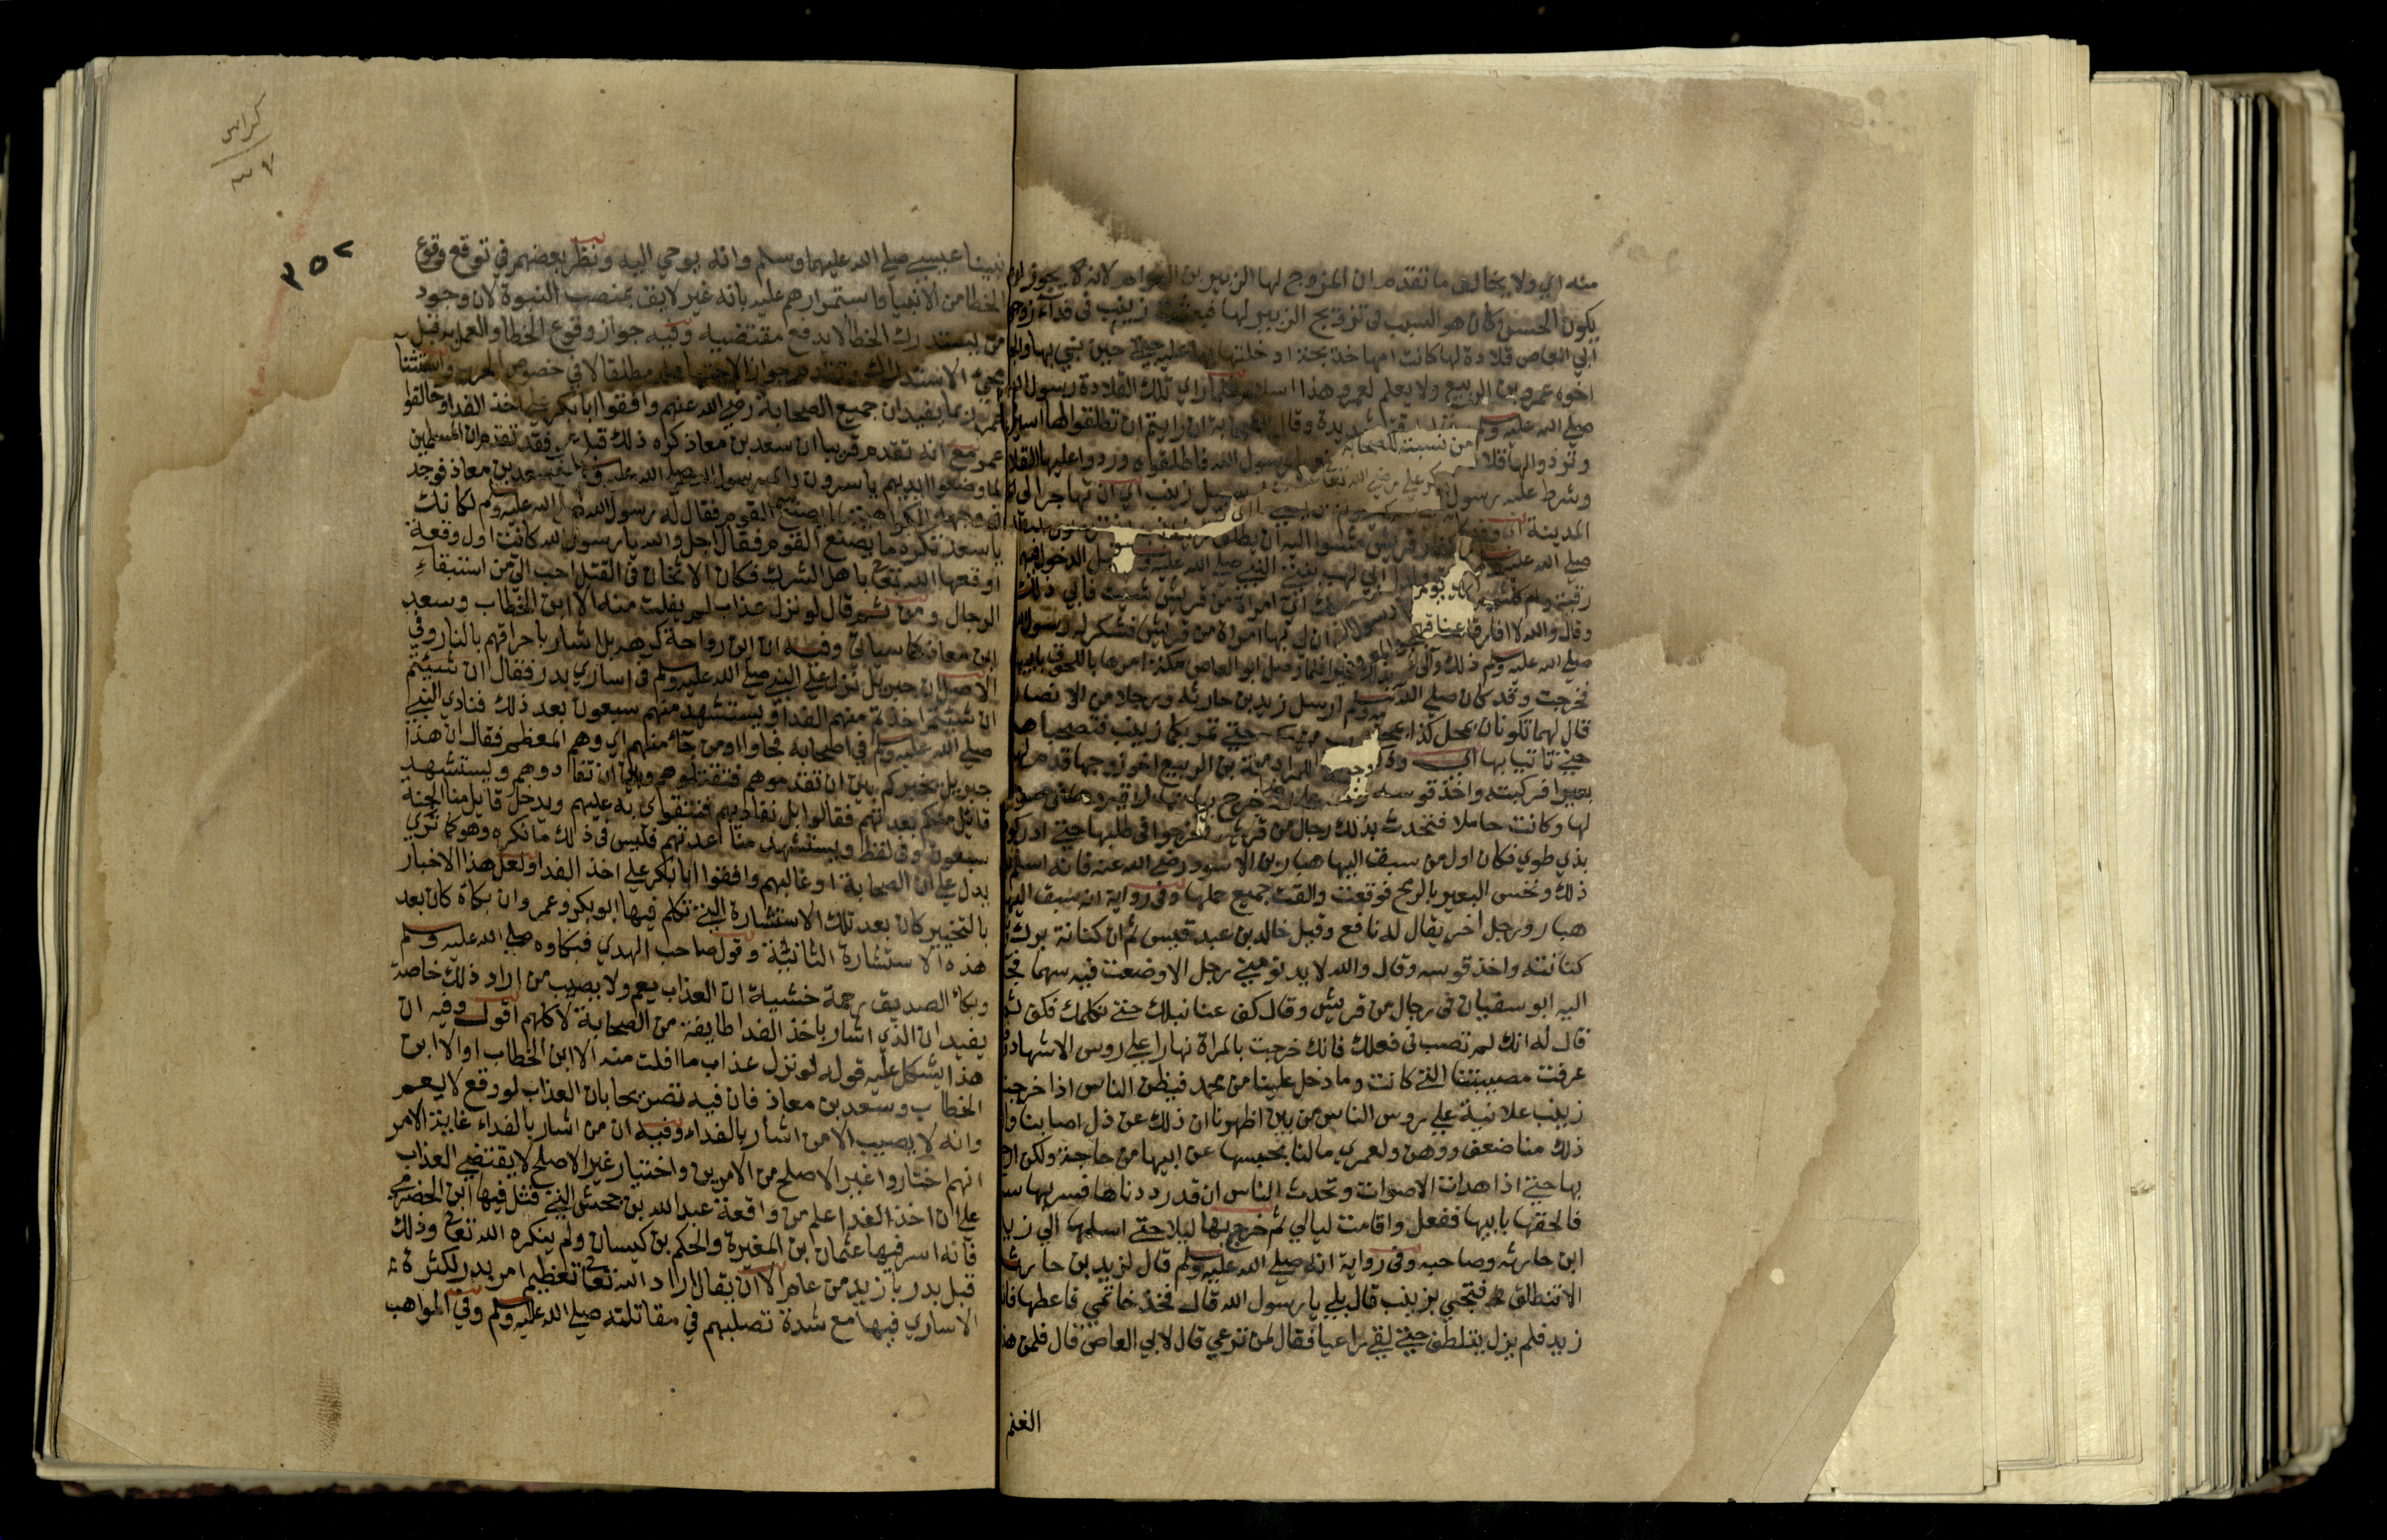 منه اي ولا يخالف ما تقدم ان المزوج لها الزبير بن العوام لانه لا يجوز ان
يكون الحسن كان هو السبب في تزويج الزبير لها فبعثت زينب في فداء زوجها
ابي العاص قلادة لها كانت امها خديجة ادخلتها بها عليه حين بني بها والجا
اخوه عمرو بن الربيع ولا يعلم لعمرو هذا اسلام فلما راي تلك القلادة رسول الله
صلي الله عليه وسلم رق لها رقة شديدة وقال للصحابة ان رايتم ان تطلقوا لها اسيرها
وتردوا لها قلا نعم يا رسول الله فاطلقوه وردوا عليها القلا
وشرط عليه رسول سبيل زينب اي ان تهاجر الي
المدينة كفار قريش مشوا اليه ان يطلق
صلي الله عليه ولدا ابي لهب بنتي النبي صلي الله عليه وسلم قبل الدخول بهما
رقية وام كلثوم اي امراة من قريش شئت فابي ذلك
وقال والله لا افارق ان لي بها امراة من قريش فشكر له رسول الله
صلي الله عليه وسلم ذلك واثني خيرا فلما وصل ابو العاص مكة امرها باللحوق بابيها
فخرجت وقد كان صلي الله عليه وسلم ارسل زيد بن حارثة ورجلا من الانصار
قال لهما تكونان بمحل كذا حتي تمر بكما زينب فتصحباها
حتي تاتيا بها بن الربيع اخو زوجها قدم لها
بعيرا فركبته واخذ قوسه خرج بها
لها وكانت حاملا فتحدث بذلك رجال من قريش فخرجوا في طلبها حتي ادركوها
بذي طوي فكان اول من سبق اليها هبار بن الاسود رضي الله عنه فانه اسلم
ذلك ونخس البعير بالرمح فوقعت والقت جميع حملها وفي رواية انه سبق اليها
هبار ورجل اخر يقال له نافع وقيل خالد بن عبد قيس ثم ان كنانة برك
كنانته واخذ قوسه وقال والله لا يدنو مني رجل الا وضعت فيه سهما فجا
اليه ابو سفيان في رجال من قريش وقال كف عنا نبلك حتي نكلمك فكف ثم
قال له انك لم تصب في فعلك فانك خرجت بالمراة نهارا علي روس الاشهاد
عرفت مصيبتنا التي كانت وما دخل علينا من محمد فيظن الناس اذا خرجت
زينب علانية علي روس الناس من بين اظهرنا ان ذلك عن ذل اصابنا وا
ذلك منا ضعف ووهن ولعمري ما لنا بحبسها عن ابيها من حاجة ولكن ار
بها حتي اذا هدات الاصوات وتحدث الناس ان قد رددناها فسر بها سر
فالحقها بابيها ففعل واقامت ليالي ثم خرج بها ليلا حتي اسلمها الي زيد
ابن حارثه وصاحبه وفي رواية انه صلي الله عليه وسلم قال لزيد بن حارثة
الا تنطلق فتجيي بزينب قال بلي يا رسول الله قال فخذ خاتمي فاعطها فا
زيد فلم يزل يتلطف حتي لقي راعيا فقال لمن ترعي قال لابي العاص قال فلمن هذ
الغنم
كراس
٣٧
٣٥٢
نبينا عيسي صلي الله عليهما وسلم وانه يوحي اليه ونظر بعضهم في توقع وقوع
الخطا من الانبيا واستمرارهم عليه بانه غير لايق بمنصب النبوة لان وجود
من يستدرك الخطا لا يدفع مقتضيه وفيه جواز وقوع الخطا والعمل به قبل
مجي الاستدراك وتقدم جواز الاجتهاد له مطلقا لا في خصوص الحرب واستثنا
عمر ربما يفيد ان جميع الصحابة رضي الله عنهم وافقوا ابا بكر علي اخذ الفدا وخالفوا
عمر مع انه تقدم قريبا ان سعد بن معاذ كره ذلك قبل عمر فقد تقدم ان المسلمين
لما وضعوا ايديهم ياسرون راي رسول الله صلي الله عليه وسلم سعد بن معاذ فوجد
في وجهه الكراهية لما يصنع القوم فقال له رسول الله صلي الله عليه وسلم لكانك
يا سعد تكره ما يصنع القوم فقال اجل والله يا رسول الله كانت اول وقعة
اوقعها الله تعالي باهل الشرك فكان الاثخان في القتل احب الي من استبقاء
الرجال ومن ثم قال لو نزل عذاب لم يفلت منه الا ابن الخطاب وسعد
ابن معاذ كما سياتي وفيه ان ابن رواحة كرهه بل اشار باحراقهم بالنار وفي
الاصل ان جبريل نزل علي النبي صلي الله عليه وسلم في اساري بدر فقال ان شيئتم
ان شيئتم اخذتم منهم الفدا ويستشهد منهم سبعون بعد ذلك فنادي النبي
صلي الله عليه وسلم في اصحابه فجاوا او من جاء منهم اي وهم المعظم فقال ان هذا
جبريل يخيركم بين ان تقدموهم فتقتلوهم وبين ان تفادوهم ويستشهد
قابل منكم بعدتهم فقالوا بل نفاديهم فنتقوي به عليهم ويدخل قابل منا الجنة
سبعون وفي لفظ ويستشهد منا عدتهم فليس في ذلك ما نكره وهو كما تري
يدل علي ان الصحابة او غالبهم وافقوا ابا بكر علي اخذ الفدا ولعل هذا الاخبار
بالتخيير كان بعد تلك الاستشارة التي تكلم فيها ابو بكر وعمر وان بكاه كان بعد
هذه الاستشارة الثانية وقول صاحب الهدي فبكاوه صلي الله عليه وسلم
وبكاء الصديق رحمة خشية ان العذاب يعم ولا يصيب من اراد ذلك خاصة
يفيد ان الذي اشار باخذ الفدا طايفة من الصحابة لا كلهم اقول وفيه ان
هذا يشكل عليه قوله لو نزل عذاب ما افلت منه الا ابن الخطاب او الا ابن
الخطاب وسعد بن معاذ فان فيه تصريحا بان العذاب لو وقع لا يعم
وانه لا يصيب الا من اشار بالفداء وفيه ان من اشار بالفداء غاية الامر
انهم اختاروا غير الاصلح من الامرين واختيار غير الاصلح لا يقتضي العذاب
علي ان اخذ الفدا علم من واقعة عبد الله بن جحش التي قتل فيها ابن الحضرمي
فانه اسر فيها عثمان ابن المغيرة والحكم بن كيسان ولم ينكره الله تعالي وذلك
قبل بدر بازيد من عام الا ان يقال اراد الله تعالي تعظيم امر بدر لكثرة
الاساري فيها مع شدة تصلبهم في مقاتلته صلي الله عليه وسلم وفي المواهب